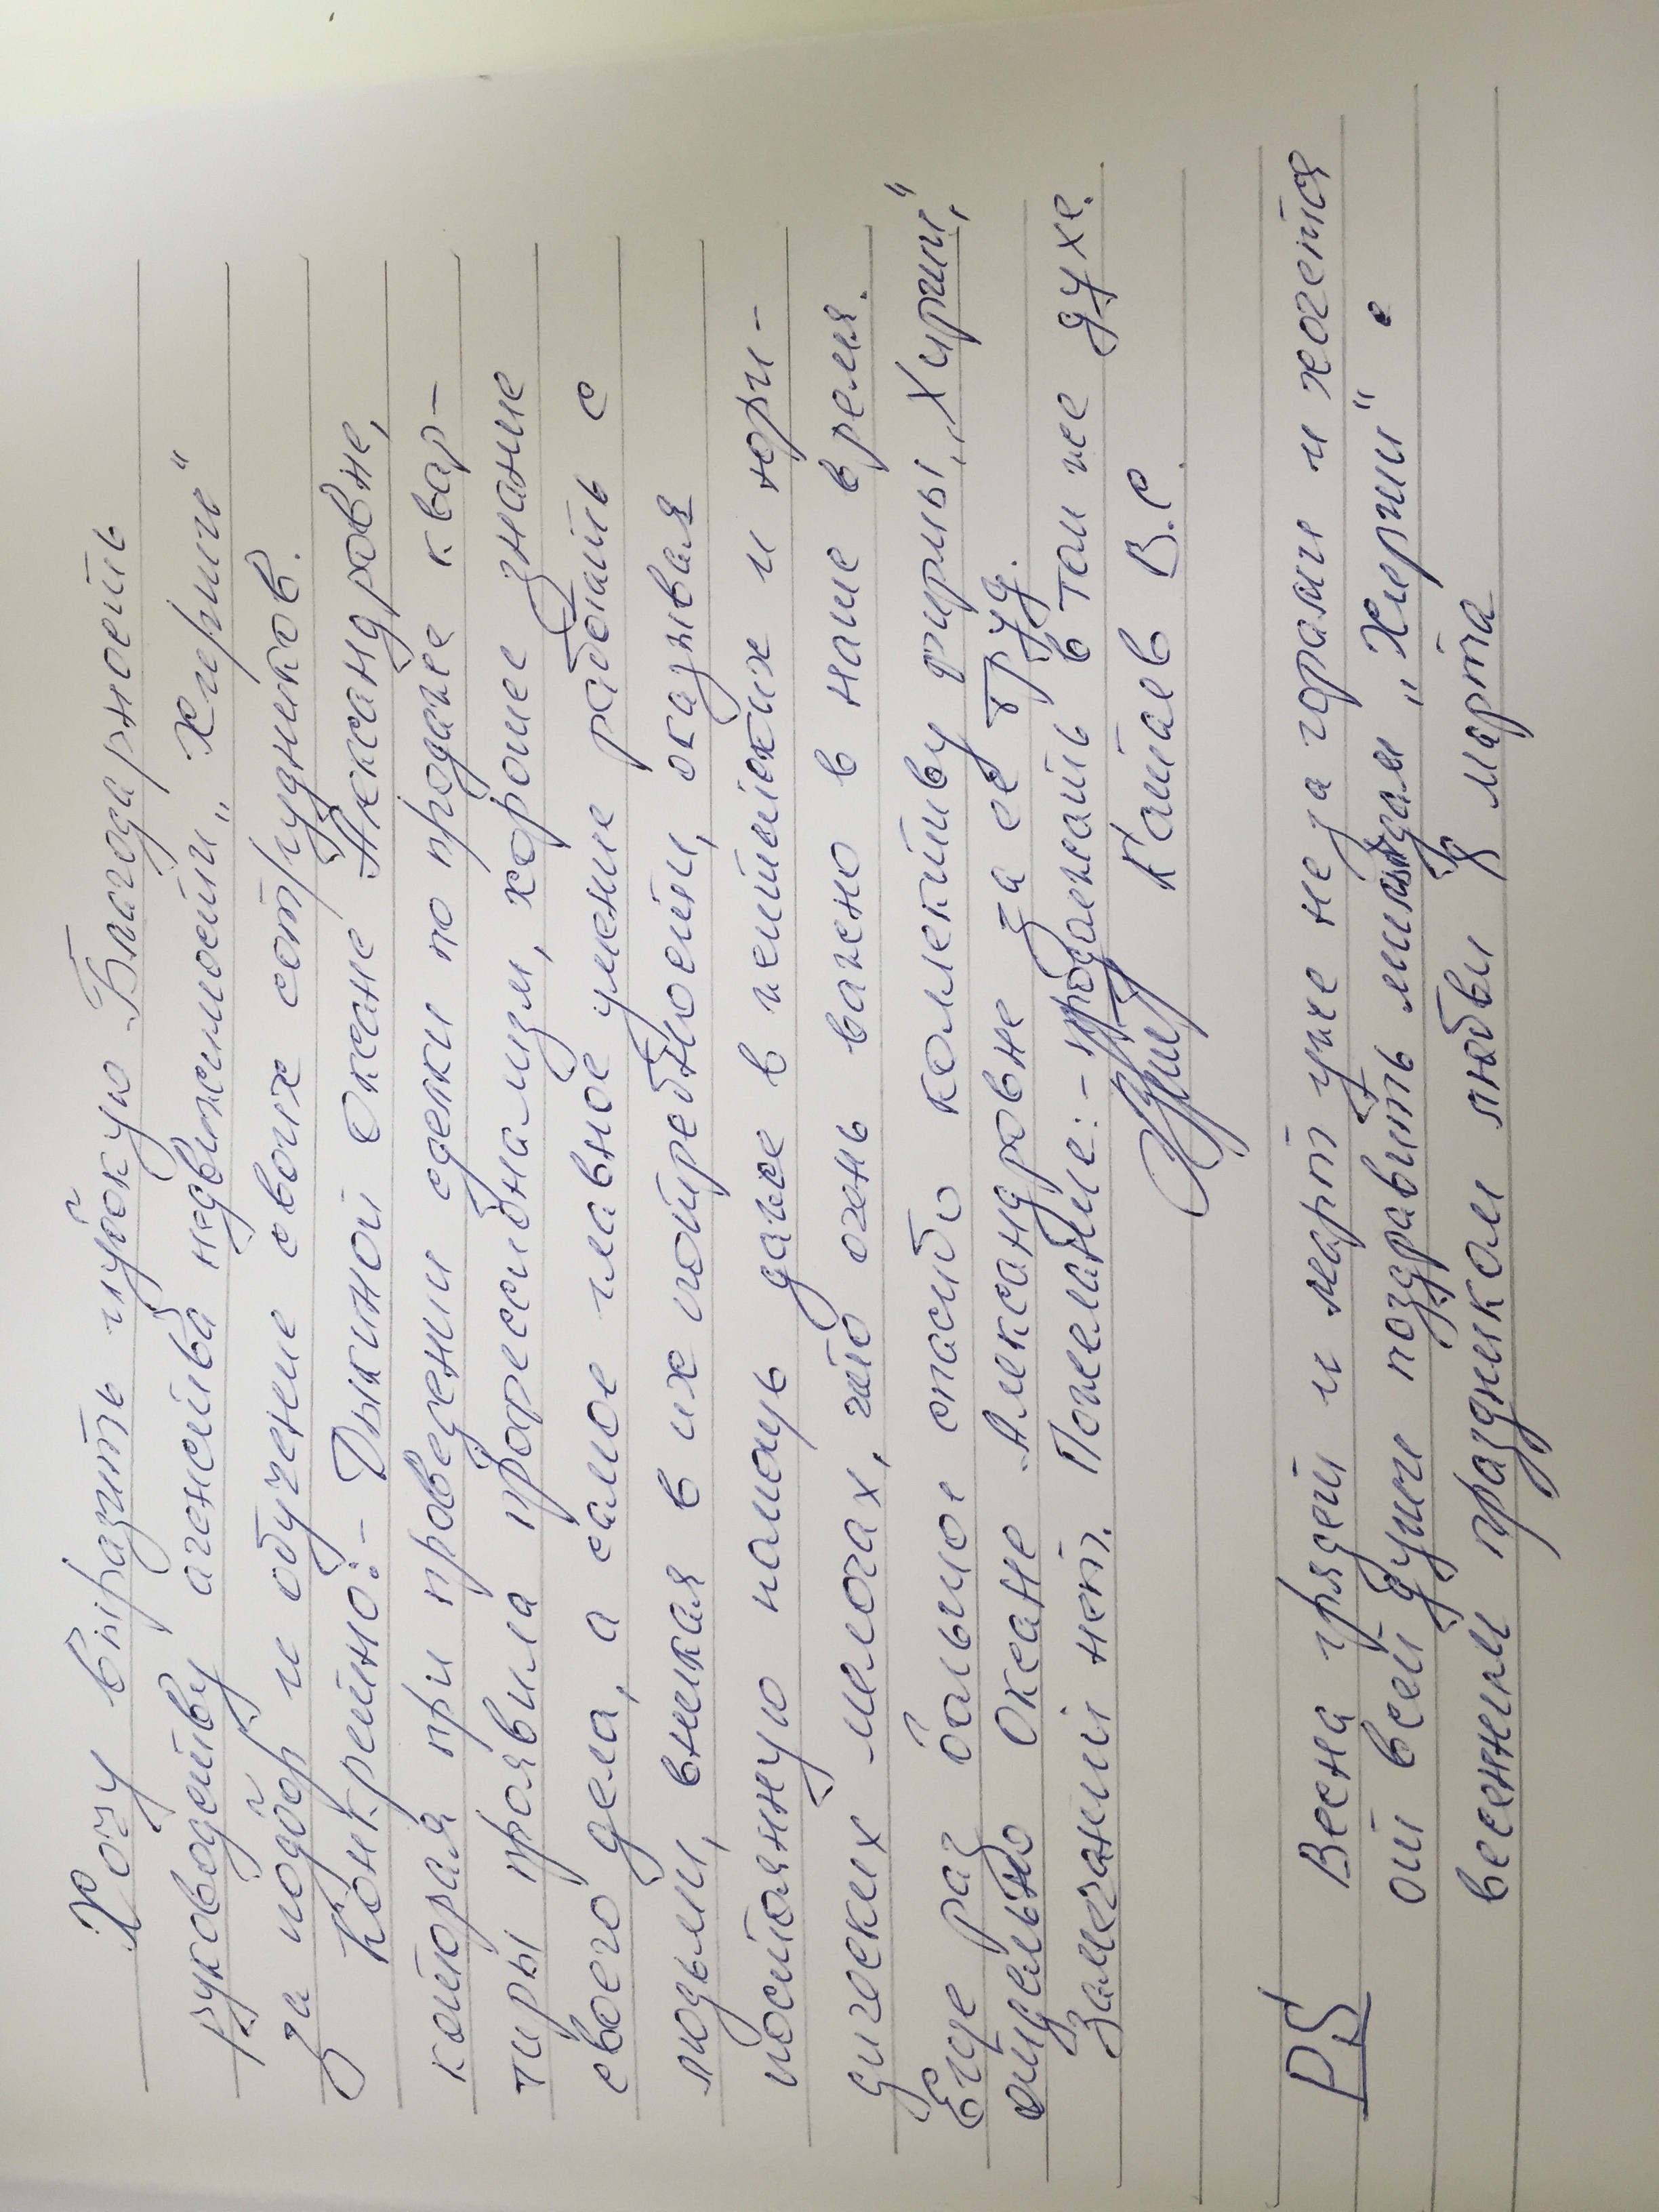 Хочу выразить глубокую Благодарность
руководству агенства недвижимости „Хирши"
за подбор и обучение своих сотрудников.
Конкретно:- Дыкиной Оксане Алксандровне,
которая при проведении сделки по продаже квар-
тиры проявила професионализм, хорошее знание
своего дела, а самое главное умение работать с
людьми, вникая в их потребности, оказывая
постоянную помощь даже в житейских и юри-
дических мелочах, что очень важно в наше время.
Еще раз большое спасибо колективу фирмы „Хирши",
отдельно Оксане Александровне за её труд.
Замечаний нет. Пожелание:- продолжать в том же духе.
Катаев В.С.
PS Весна грядет и март уже не за горами и хочется
от всей души поздравить милых дам „Хирши" с
весенним праздником любви 8 марта